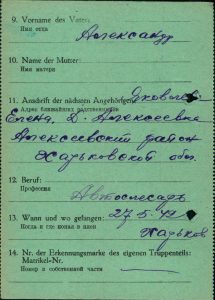 9. Vorname des Vaters
Имя отца
Александр
10. Name der Mutter:
Имя матери
11. Anschrift der nächsten Angehörigen
Яковлева
Адрес ближайших родственников
Елена, Д. Алексеевка
Алексеевский район
Харьковской обл.
12. Beruf:
Профессия
Автослесарь
13. Wann und wo gefangen:
27.5.42
Когда и где попал в плен
Харьков
14. Nr. der Erkennungsmarke des eigenen Truppenteils:
Matrikel-Nr.
Номер в собственной части
—